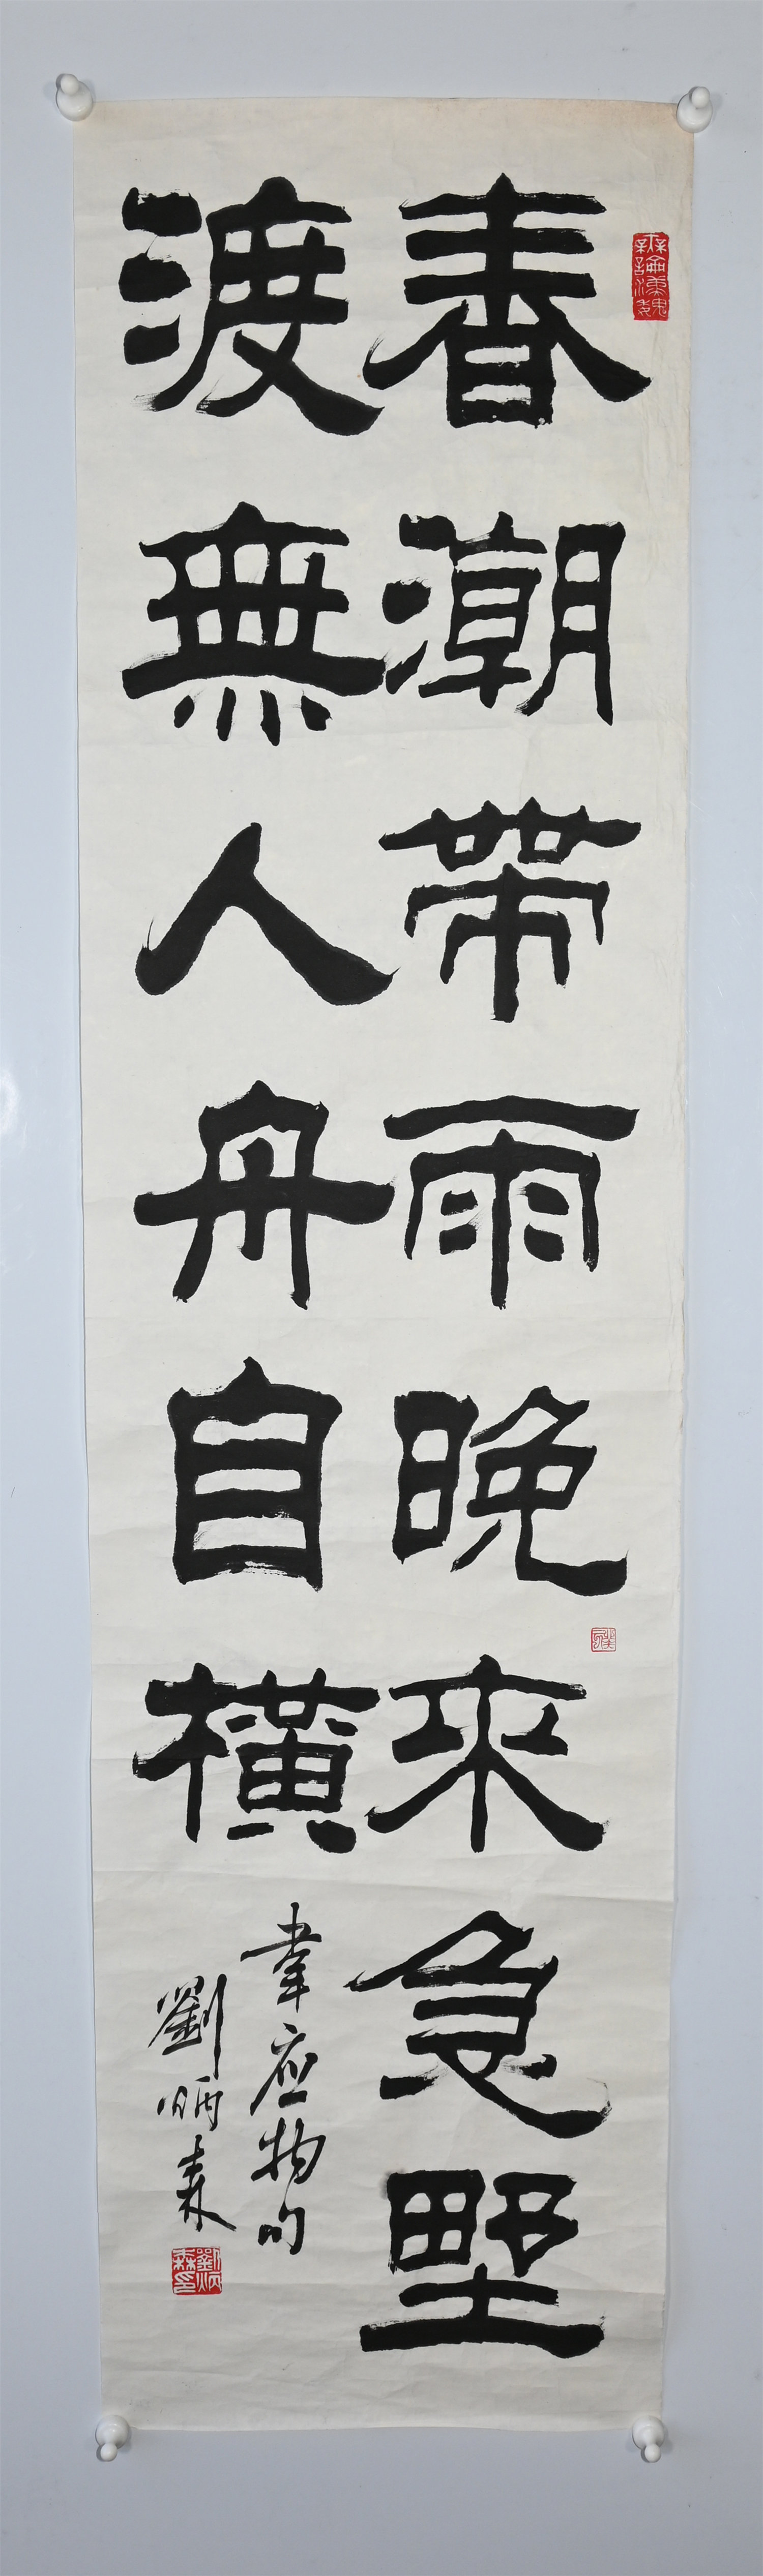 春潮帶雨晚來急野
渡無人舟自橫
韋应物句
劉炳森
劉炳森印